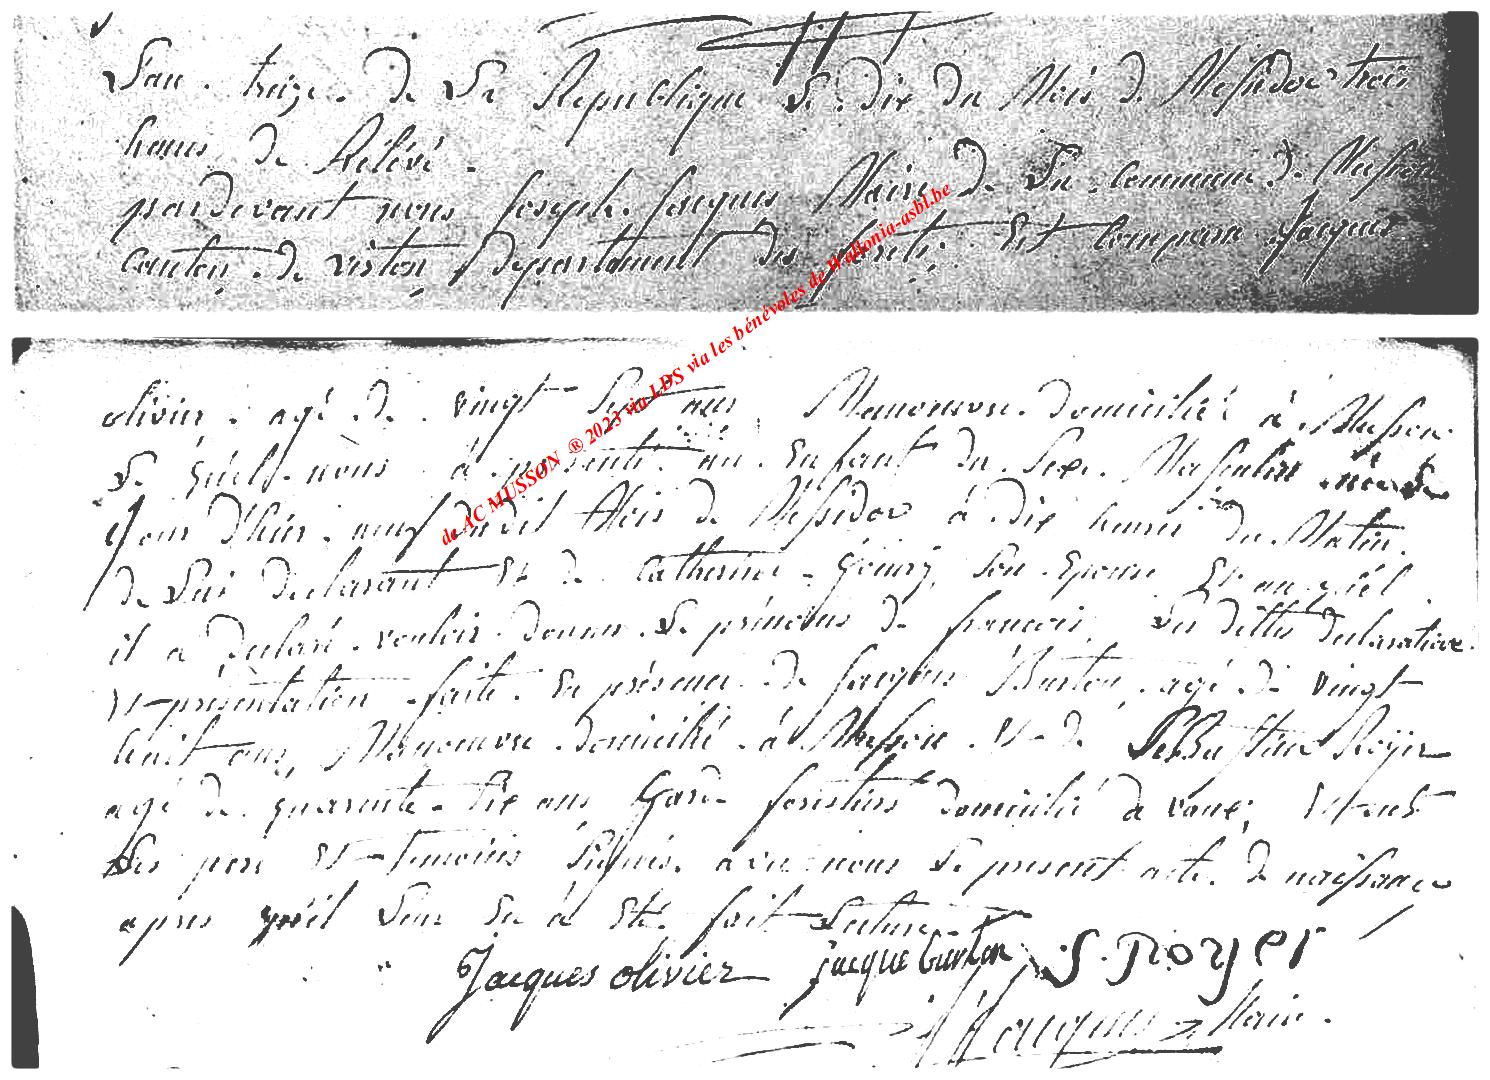 L'an treize de La Republique Le dix du Mois de Messidor trois
heures de Rélévé.
pardevant nous Joseph Jacques Maire de La commune de Musson
canton de virton, departement des forêts. Est comparu Jacques
olivier. agé de vingt Sept ans, Manoeuvre domicilié à Musson
Le quel nous à présenté un Enfant du Sexe Masculin né Le
Jour D'hier neuf dudit Mois de Messidor à dix heures du Matin.
de Lui declarant Et de Catherine Goury Son Epouse Et au quél
il a declaré vouloir donner Le prénoms de françois, Les dittes declaration
Et présentation faite En présence de Jacques Burton agé de vingt
huit ans, Manoeuvre domicilié à Musson Et de Sebastien Roÿer
agé de quarante Six ans Garde forestiers domicilié à vaux, Et ont
Les pere Et temoins Signés avec nous Le present acte de naissance
apres qu'il Leur En à Eté fait Lecture.
Jacques olivier jacque burton S. royer
J Jacques Maire.
de AC MUSSON ® 2023 via LDS via les bénévoles de Wallonia-asbl.be